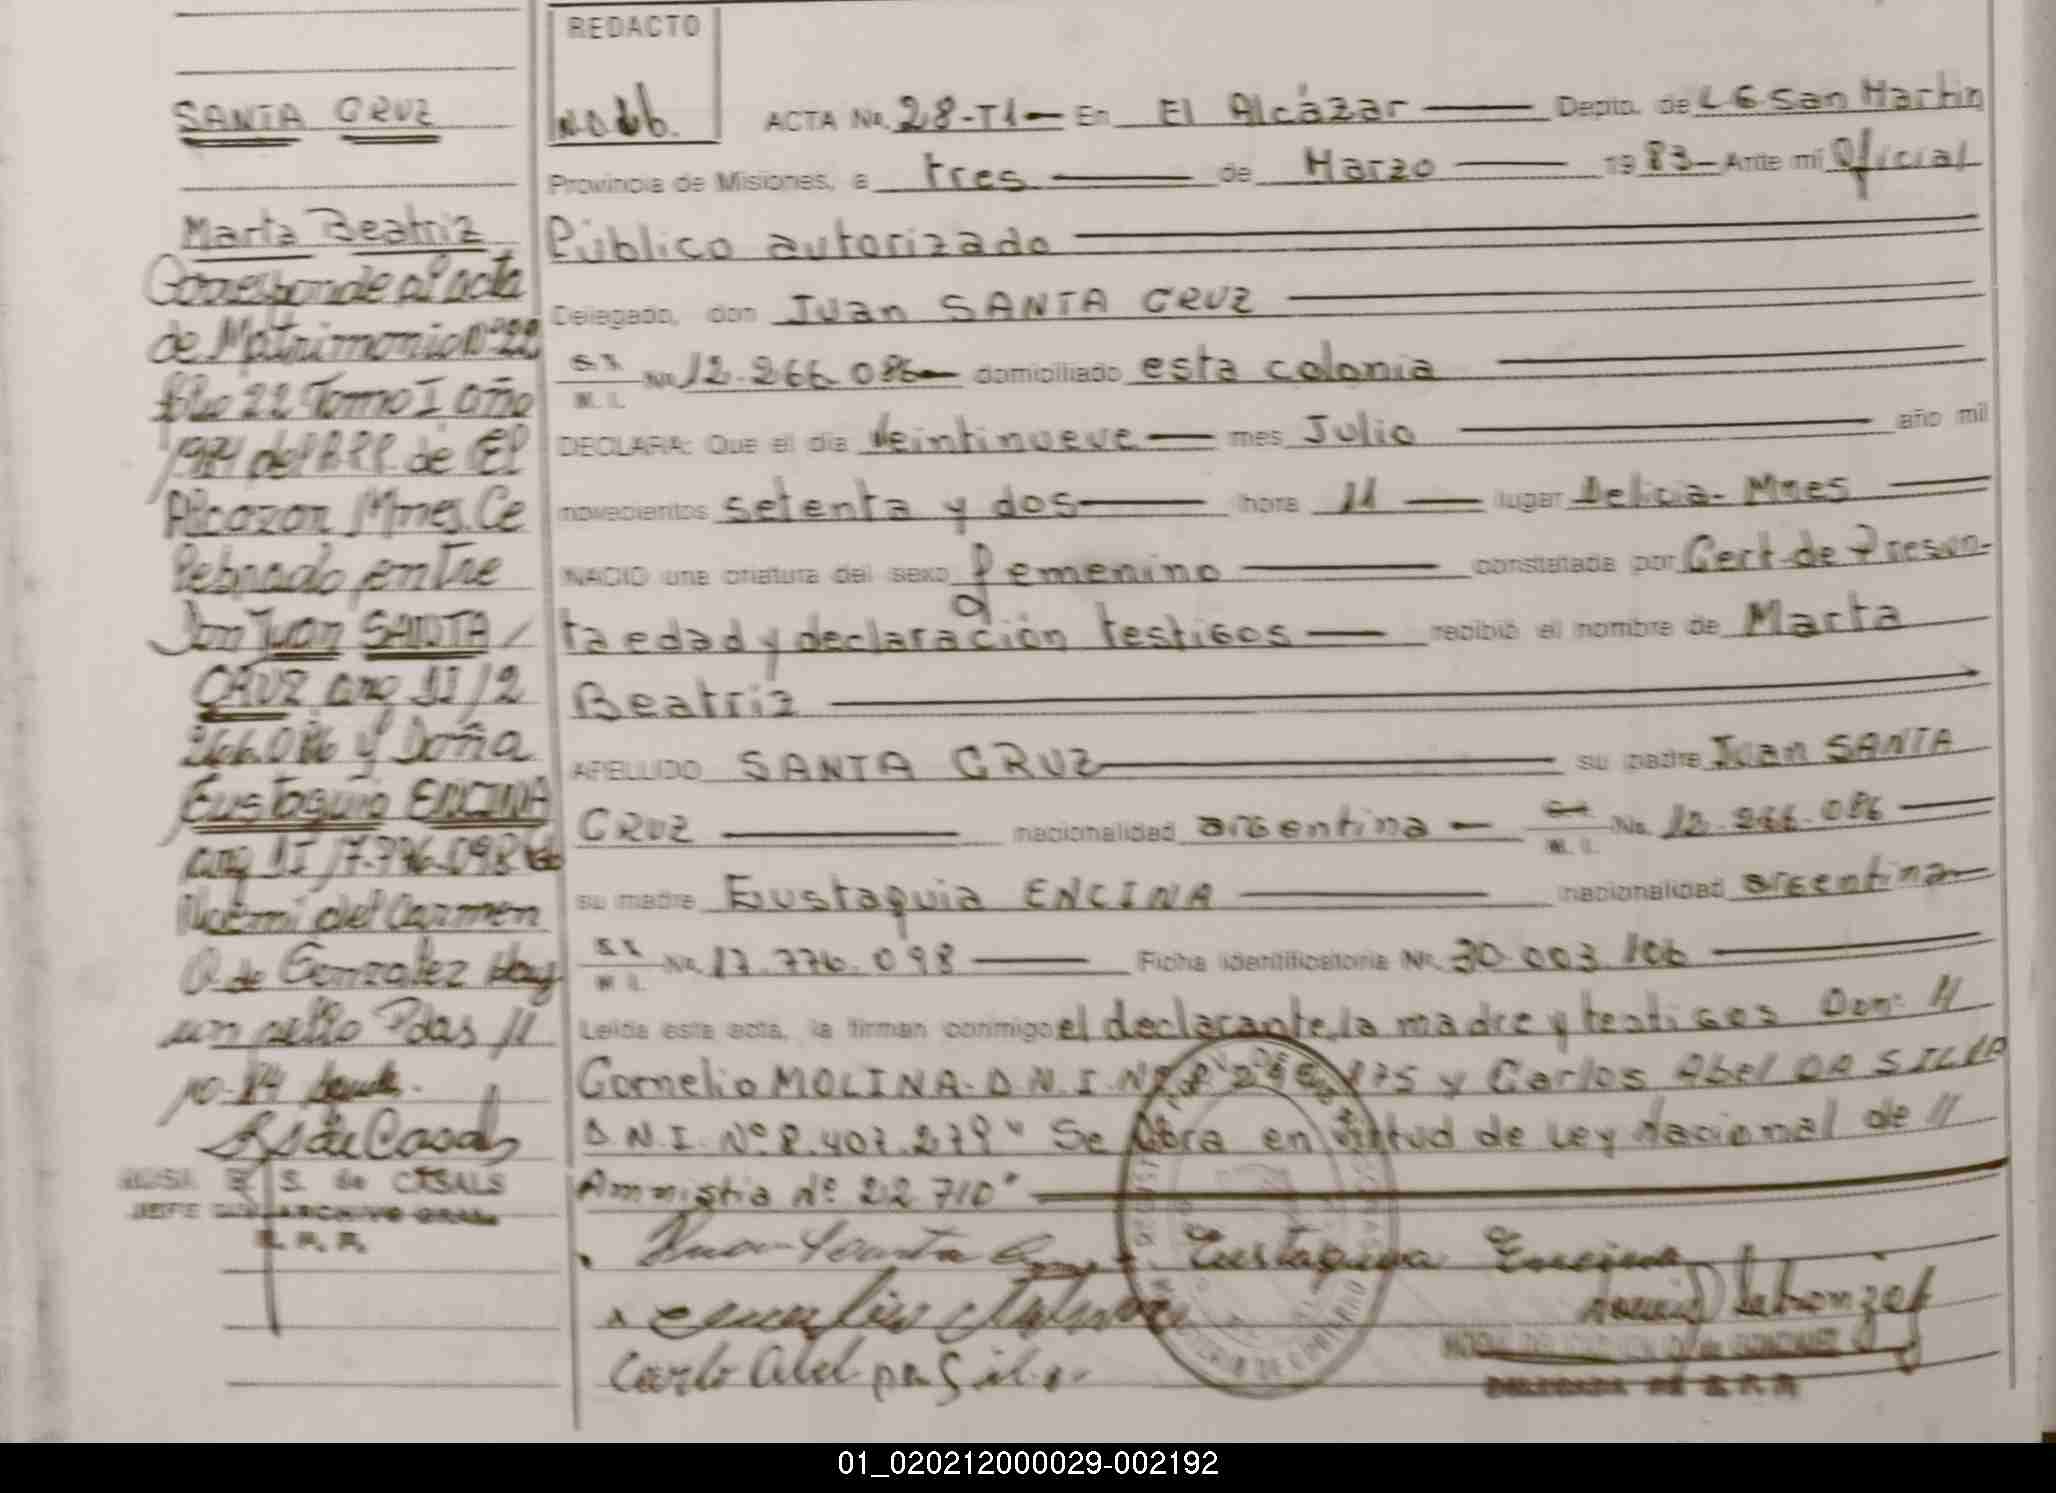 SANTA CRUZ
Marta Beatriz
Corresponde al acta
de Matrimonio Nº 22
folio 22 Tomo I año
del R.P.P. de El
Alcazar Mnes. Ce
lebrado entre
Don Juan SANTA /
CRUZ arg DI 12
266.086 y Doña
Eustaquia ENCINA
arg DI 17.776.098
Noemi del Carmen
O. de Gonzalez Hay
un sello Pdas //
ROSA E. S. de CASALS
JEFE DIV. ARCHIVO GRAL.
R. P. P.
REDACTO
ACTA No. 28-T1- En El Alcázar Depto. de L G San Martin
Provincia de Misiones, a tres de Marzo 1983- Ante mi Oficial
Público autorizado
Delegado, don Juan SANTA CRUZ
No. 12.266.086 domiciliado esta colonia
M. I.
DECLARA: Que el día Veintinueve mes Julio año mil
novecientos setenta y dos hora 11 lugar Delicia- Mnes
NACIO una criatura del sexo femenino constatada por Cert. de Presun-
ta edad y declaración testigos recibió el nombre de Marta
Beatriz
APELLIDO SANTA CRUZ su padre Juan SANTA
CRUZ nacionalidad argentina No. 12.266.086
M. I.
su madre Eustaquia ENCINA nacionalidad argentina
No. 17.776.098 Ficha identificatoria No. 30.003.106
M. I.
Leída esta acta, la firman conmigo el declarante, la madre y testigos Don: //
Cornelio MOLINA- D.N.I. Nº 175 y Carlos Abel DA SILVA
D.N.I. Nº 8.407.279 " Se labra en virtud de Ley Nacional de //
Amnistia Nº 22 710"
Juan Santa Cruz Eustaquia Encina
Carlo Abel Da Silva
DELEGADA DE R.P.P.
01_020212000029-002192